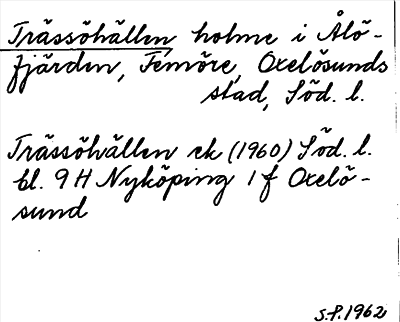 Trässöhällen, holme i Ålö-
fjärden, Femöre, Oxelösunds
stad, Söd. l.
Trässöhällen ek (1960) Söd. l.
bl. 9 H Nyköping 1 f Oxelö-
sund
S.P. 1962